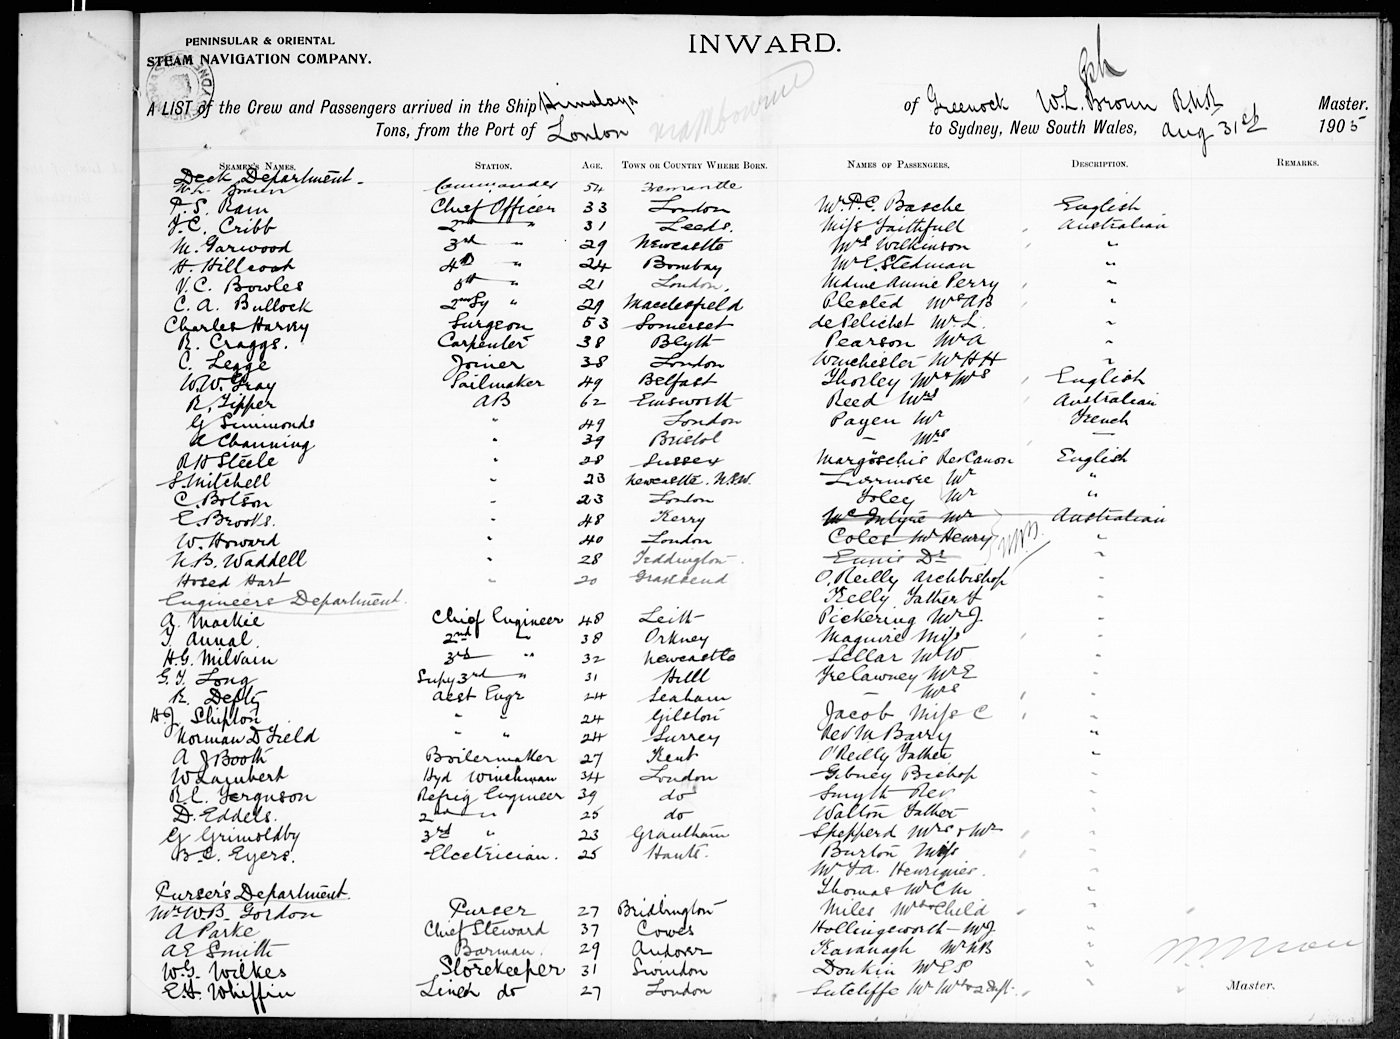 PENINSULAR & ORIENTAL
STEAM NAVIGATION COMPANY.
INWARD.
A LIST of the Crew and Passengers arrived in the Ship Himalaya of Greenock W.L. Broun R.N.R Master.
Tons, from the Port of London to Sydney, New South Wales, Aug 31st 1905
SEAMEN'S NAMES. STATION. AGE. TOWN OR COUNTRY WHERE BORN. NAMES OF PASSENGERS. DESCRIPTION. REMARKS.
Deck Department
W.L. Broun Commander 54 Fremantle
P.S. Rain Chief Officer 33 London Mr P.C. Basche English
J.C. Cribb 2nd " 31 Leeds. Miss Faithfull Australian
M. Garwood 3rd " 29 Newcastle Mrs Wilkinson "
H. Hillcoat 4th " 24 Bombay Mr E. Stedman "
V.C. Bowles 5th " 21 London. Mdme Annie Perry "
C.A. Bullock 2nd Sy " 29 Macclesfield Plested Mrs A B "
Charles Harvey Surgeon 53 Somerset de Pelichet Mr L. "
R. Craggs. Carpenter 38 Blyth Pearson Mr A "
C. Legge Joiner 38 London Winchester Mr H H "
W.W. Gray Sailmaker 49 Belfast Thorley Mr & Mrs English
R. Tipper AB 62 Emsworth Reed Mrs Australian
G Simmonds " 49 London Payen Mr French
A Channing " 39 Bristol — Mrs —
R H Steele " 28 Sussex Margöschis Rev Canon English
S. Mitchell " 23 Newcastle. N.S.W. Livermore Mr "
C. Botson " 23 London Foley Mr "
E. Brooks. " 48 Kerry McIntyre Mr Australian
W. Howard " 40 London Coles Mr Henry "
N.B. Waddell " 28 Teddington Ennis Dr "
Hosed Hart " 20 Gravesend O'Reilly Archbishop "
Engineers Department. Kelly Father "
A. Mackie Chief Engineer 48 Leith Pickering Mr J. "
T. Annal 2nd " 38 Orkney Maguire Miss "
H.G. Milvain 3rd " 32 Newcastle Sellar Mr W "
G.T. Long Supy 3rd " 31 Hull Trelawney Mr E "
R. Defty Asst Engr 24 Seaham Mrs "
H.J. Shipton " " 24 Gilston Jacob Miss C "
Norman D Field " " 24 Surrey Rev M Barry "
A J Booth Boilermaker 27 Kent O'Reilly Father "
W Lambert Hyd Winchman 34 London Gibney Bishop "
R.C. Ferguson Refrig Engineer 39 do Smyth Rev "
D. Eddels. 2nd " 25 do Walton Father "
G Grimoldby 3rd " 23 Grantham Shepperd Mrs & Mr "
B.C. Eyers. Electrician. 25 Hants. Burton Miss "
Mr & A. Henriques. "
Purser's Department. Thomas Mr C M "
Mr W B. Gordon Purser 27 Bridlington Miles Mrs & Child "
A Parke Chief Steward 37 Cowes Hollingsworth Mr J "
A E Smith Barman. 29 Andover Kavanagh Mr "
W.G. Wilkes Storekeeper 31 Swindon Donkin Mr E S "
E.H. Whiffin Linen do 27 London Sutcliffe Mr Mrs & 2 Daft. "
Master.